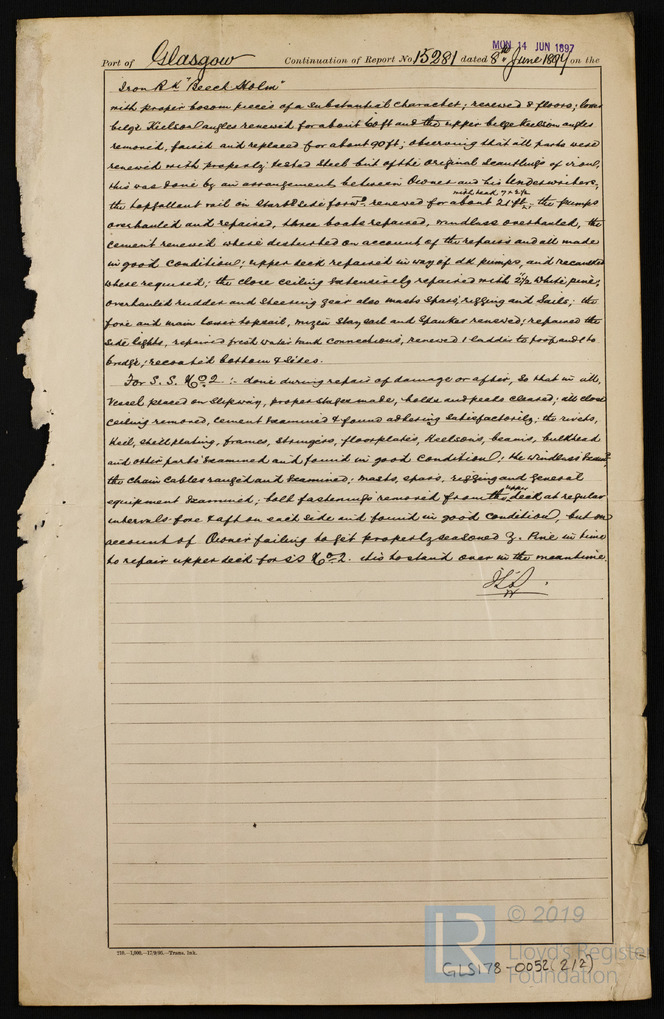 MON 14 JUN 1897
Port of Glasgow Continuation of Report No 15281 dated 8th June 1897 on the
Iron Bk "Beech Holm"
with proper bosom pieces of a substantial character; renewed 8 floors; lower
bilge Keelson angles renewed for about 60ft and the upper bilge Keelson angles
removed, faired and replaced for about 90ft; observing that all parts were
renewed with properly tested steel but of the original scantlings of iron,
this was done by an arrangement between Owner and his Underwriters;
the topgallant rail on Starbd side forwd renewed for about 21 ft; the pumps
overhauled and repaired, three boats repaired, windlass overhauled, the
cement renewed where disturbed on account of the repairs and all made
in good condition; upper deck repaired in way of dk pumps, and recaulked
where required; the close ceiling extensively repaired with 2½" white pine;
overhauled rudder and steering gear also masts spars, rigging and sails; the
fore and main lower topsail, mizen staysail and spanker renewed; repaired the
side lights, repaired fresh water tank connections, renewed 1 ladder to poop and 1 to
bridge; recoated bottom & sides.
For S. S. No 2 :- done during repair of damage or after, so that in all,
Vessel placed on Slipway, proper stages made, holds and peaks cleared; all close
ceiling removed, cement examined & found adhering satisfactorily; the rivets,
Keel, shell plating, frames, stringers, floorplates, Keelsons, beams, bulkhead
and other parts examined and found in good condition; the windlass examd
the chain cables ranged and examined; masts, spars, rigging and general
equipment examined; bolt fastenings removed from the upper deck at regular
intervals fore & aft on each side and found in good condition, but on
account of Owner failing to get properly seasoned y. Pine in time
to repair upper deck for SS No 2. this to stand over in the meantime
210.—1,000.—17/9/95.—Trans. Ink.
LR
© 2019
Lloyd's Register
Foundation
GLS178-0052 (2/2)